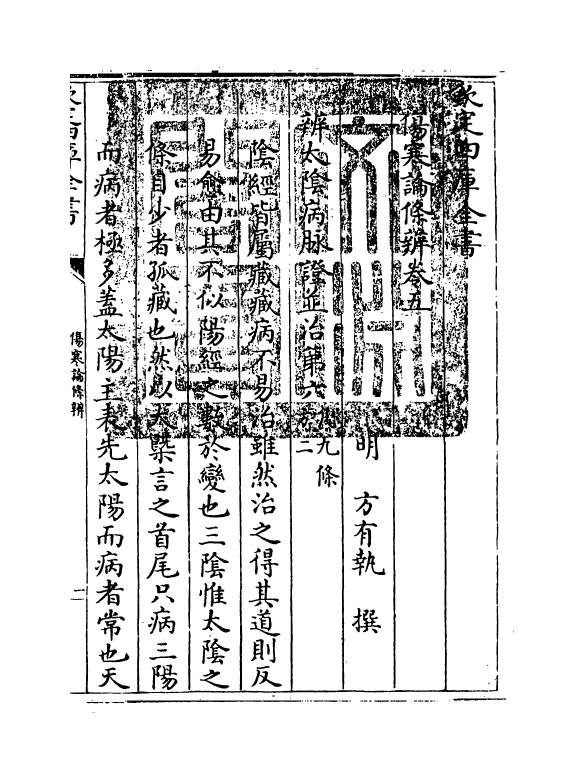 欽定四庫全書
傷寒論條辨卷五
明 方有執 撰
辨太陰病脉證并治第六 凡九條 方二
陰經皆屬臟臟病不易治雖然治之得其道則反
易愈由其不似陽經之數於變也三陰惟太陰之
條目少者孤藏也然以大槩言之首尾只病三陽
而病者極多蓋太陽主表先太陽而病者常也天
欽定四庫全書
傷寒論條辨